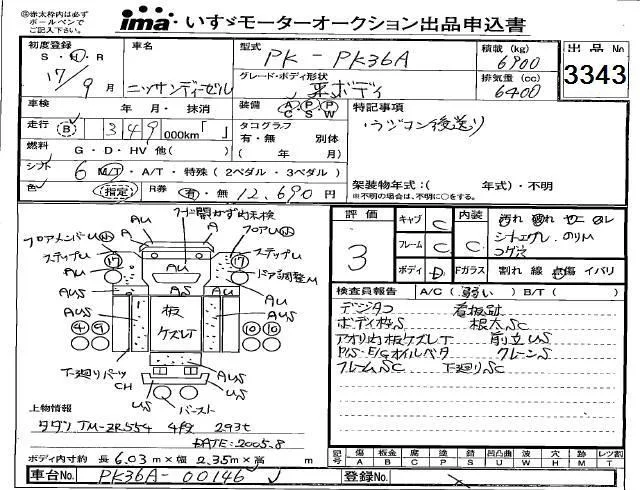 ㊟赤太枠内は必ず
ボールペンで
ご記入下さい。
ima・いすゞモーターオークション出品申込書
初度登録
S・H・R
17/9月
車名
ニッサンディーゼル
型式
PK-PK36A
グレード・ボディ形状
平ボディ
積載(kg)
6900
排気量(cc)
6400
出品No
3343
車検
年・月・抹消
装備
AC PS PW
特記事項
・ラジコン後送り
走行
B 349 000km「 」
タコグラフ
有・無 別体
( 年 月)
燃料
G・D・HV 他( )
シフト
6 MT・A/T・特殊(2ペダル・3ペダル)
色
(指定)
R券
有・無 12,690円
架装物年式:( 年式)・不明
※不明の場合は、不明に○をする。
評価
3
キャブ C
フレーム C
ボディ D
内装 C
Fガラス
汚れ 破れ
シートエグレ、のりM
コゲ穴
割れ 線 点傷 イバリ
検査員報告
A/C(弱い) B/T( )
デジタコ 看板跡
ボディ枠S 根太SC
アオリ内板ケズレT 前立US
P/S・E/Gオイルベタ クレーンS
フレームSC 下廻りSC
フード開かず内未検
AU
A
A
フロアメンバーU
フロアU
ステップU
ステップU
17
17
AU
AU
ドア調整M
AS
AU
AU
AUS
AUS
板
ケズレT
4 9
10 10
下廻りパーツ
CH
AUS
AUS
US
US
バースト
上物情報
タダノ TM-ZR554 4段 2.93t
DATE:2005.8
ボディ内寸約 長 6.03m×幅 2.35m×高 m
記号
傷 板金 腐 塗 錆 凹凸曲 波 穴 跡 レンツ割
A B C P S U W H M T
車台No.
PK36A-00146
登録No.